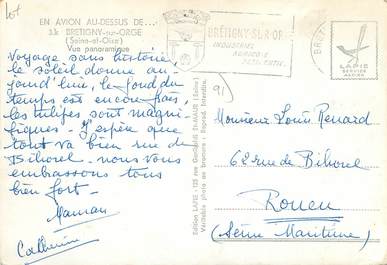 EN AVION AU-DESSUS DE...
BRÉTIGNY-sur-ORGE
(Seine-et-Oise)
Vue panoramique
Voyage sans histoire,
le soleil donne au-
jourd'hui, le fond du
temps est encore frais
les tulipes sont magni-
fiques. J'espère que
tout va bien rue du
Bihorel. nous vous
embrassons tous
bien fort.
Maman
Catherine
Edition LAPIE
Véritable photo au bromure - Reprod. Interdite.
BRÉTIGNY-SUR-ORGE
INDUSTRIES
91
LAPIE
SERVICE
AERIEN
Monsieur Louis Renard
62 rue de Bihorel
Rouen
(Seine Maritime)